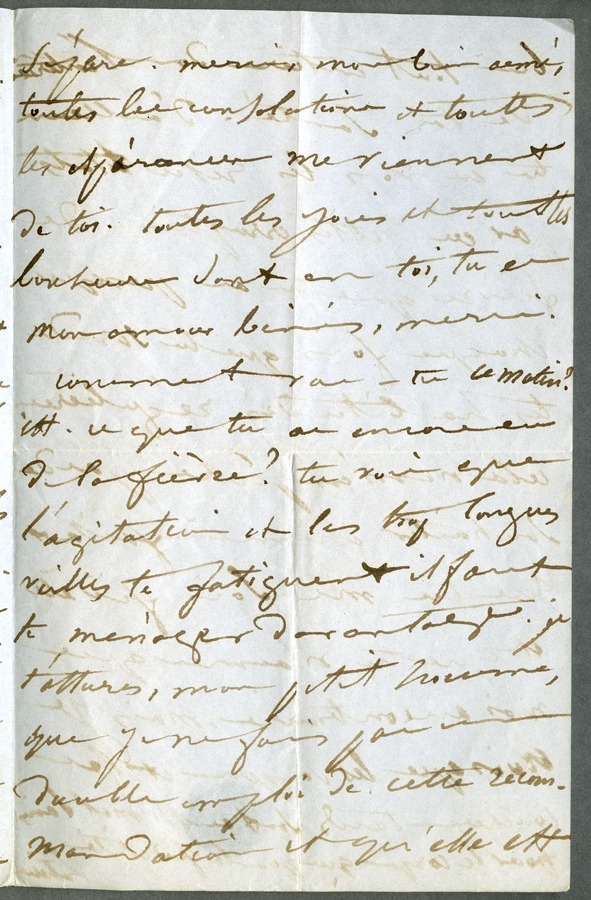 sépare. merci, mon bien aimé,
toutes les consolations et toutes
les espérances me viennent
de toi. toutes les joies et toutes
bonheurs sont en toi, tu es
mon amour béni, merci.
comment vas-tu ce matin?
est-ce que tu as encore eu
de la fièvre? tu vois que
l'agitation et les trop longues
veilles te fatiguent il faut
te ménager davantage. je
t'assures, mon petit homme,
que je ne fais pas un
double emploi de cette recom-
mandation et qu'elle est